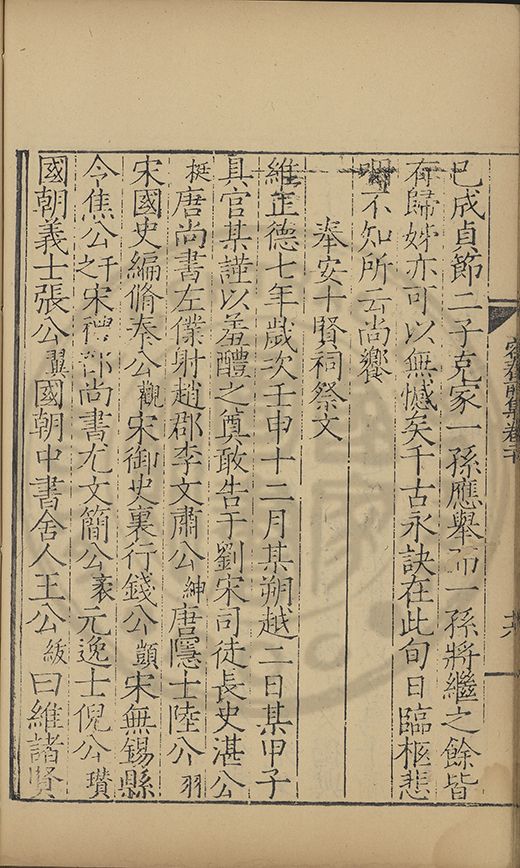 已成貞節二子克家一孫應舉而一孫將繼之餘皆
有歸姊亦可以無憾矣千古永訣在此旬日臨柩悲
哽不知所云尚饗
奉安十賢祠祭文
維正德七年歲次壬申十二月某朔越二日某甲子
具官某謹以羞醴之奠敢告于劉宋司徒長史湛公
挺唐尚書左僕射趙郡李文肅公紳唐隱士陸公羽
宋國史編脩秦公觀宋御史裏行錢公顗宋無錫縣
令焦公千之宋禮部尚書尤文簡公袤元逸士倪公瓚
國朝義士張公翼國朝中書舍人王公紱曰維諸賢